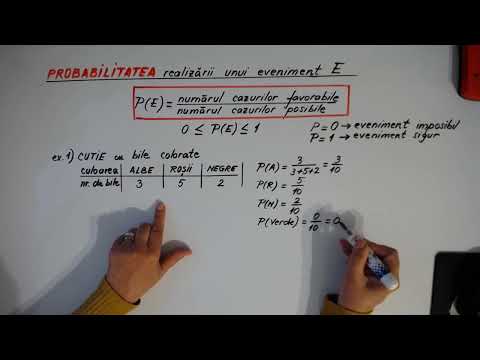 PROBABILITATEA realizării unui eveniment E
P(E) = numărul cazurilor favorabile / numărul cazurilor posibile
0 ≤ P(E) ≤ 1
P = 0 → eveniment imposibil
P = 1 → eveniment sigur
ex. 1) CUTIE cu bile colorate
culoarea | ALBE | ROȘII | NEGRE
nr. de bile | 3 | 5 | 2
P(A) = 3/(3+5+2) = 3/10
P(R) = 5/10
P(N) = 2/10
P(Verde) = 0/10 = 0